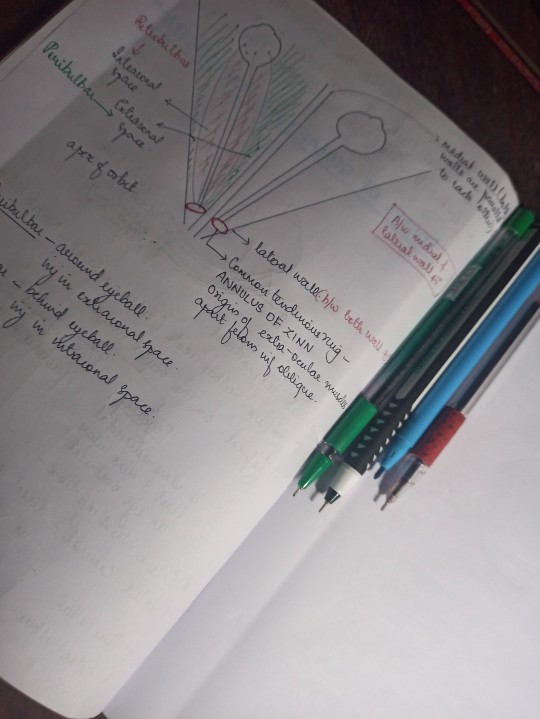 Retrobulbar
Intraconal
space
Peribulbar
Extraconal
space
apex of orbit
medial wall
walls are
to each
b/w medial &
lateral wall
lateral wall
b/w both wall
Common tendinous ring -
ANNULUS OF ZINN
origin of extra-ocular muscles
apart from inf oblique.
- around eyeball.
inj in extraconal space.
- behind eyeball.
inj in intraconal space.